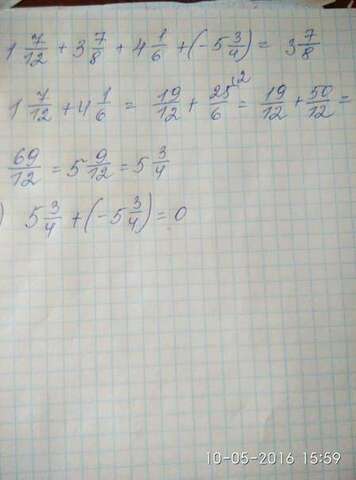 1 7/12 + 3 7/8 + 4 1/6 + (-5 3/4) = 3 7/8
1 7/12 + 4 1/6 = 19/12 + 25/6 ^(2 = 19/12 + 50/12 =
69/12 = 5 9/12 = 5 3/4
) 5 3/4 + (-5 3/4) = 0
10-05-2016 15:59